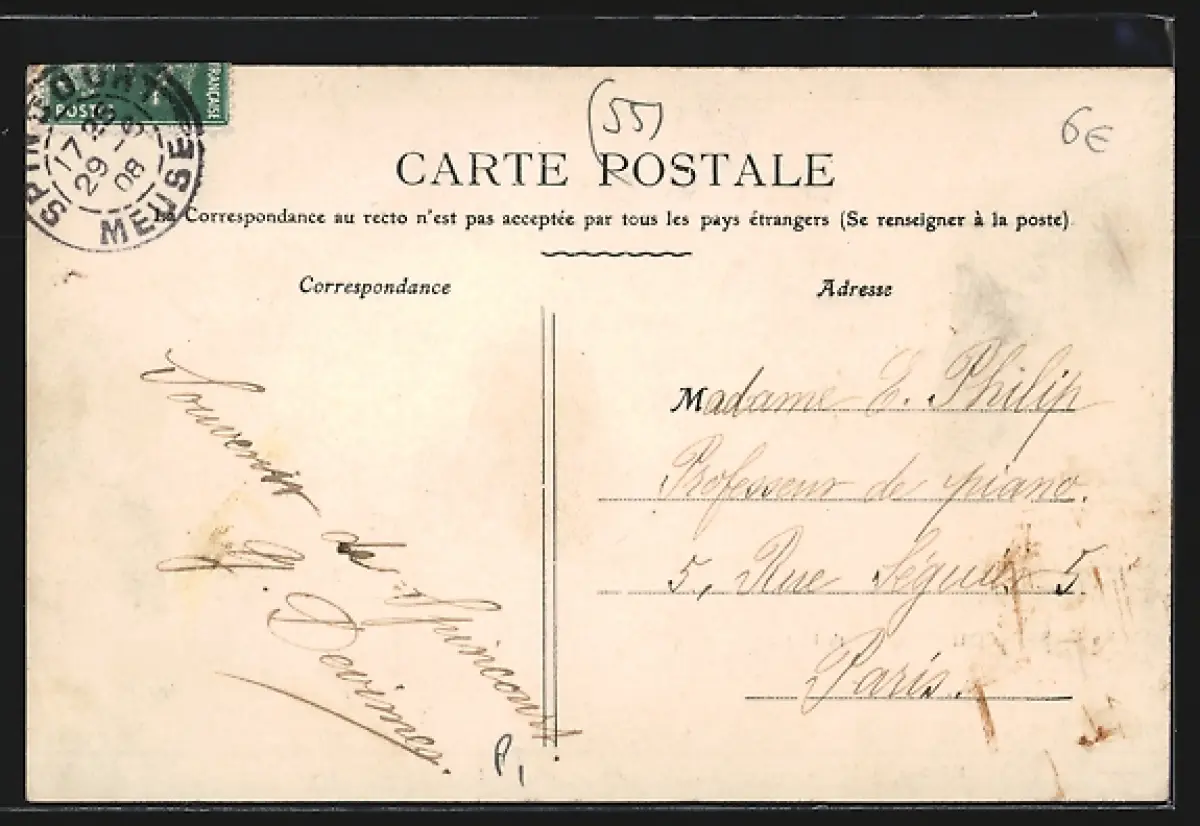 FRANÇAISE
POSTES
SPINCOURT
17 25
29 -5
08
MEUSE
(55)
6€
CARTE POSTALE
La Correspondance au recto n'est pas acceptée par tous les pays étrangers (Se renseigner à la poste)
Correspondance
Adresse
Souvenir
de Spincourt.
Madame E. Philip
Professeur de piano.
5, Rue Séguier 5.
Paris.